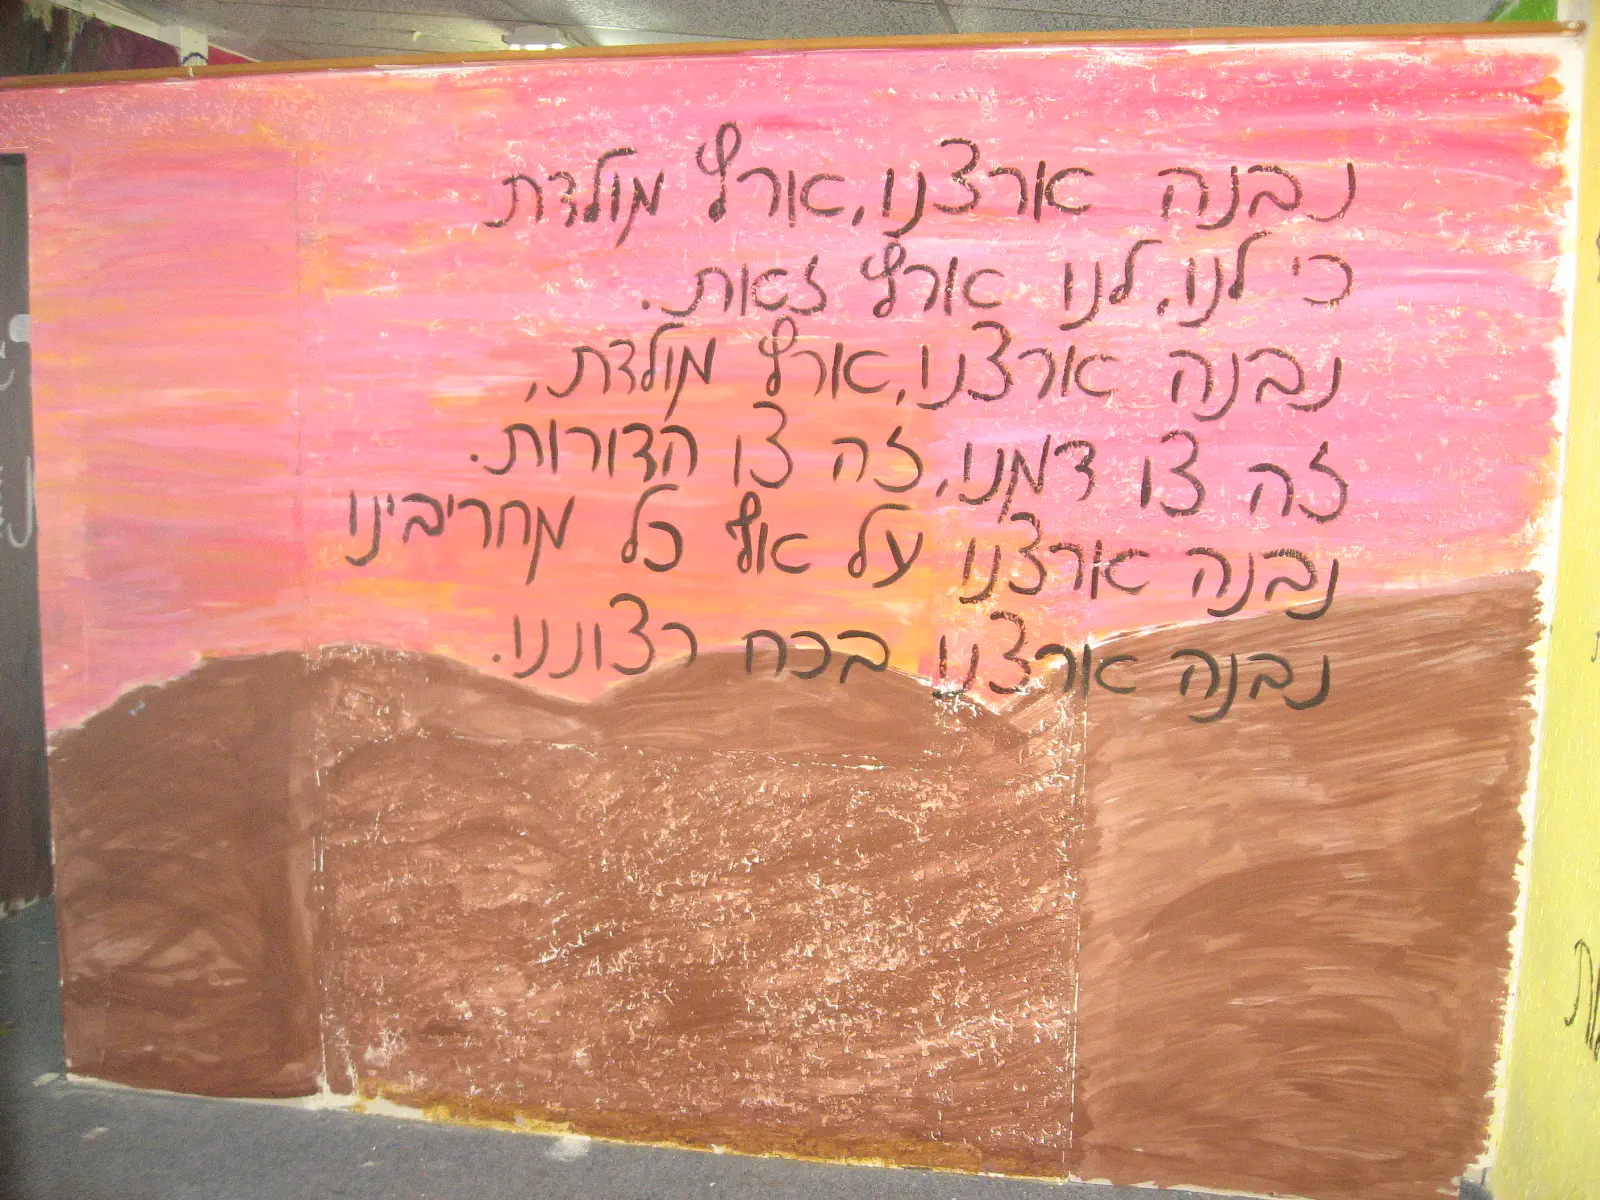 נבנה ארצנו, ארץ מולדת
כי לנו, לנו ארץ זאת.
נבנה ארצנו, ארץ מולדת,
זה צו דמנו, זה צו הדורות.
נבנה ארצנו על אף כל מחריבינו
נבנה ארצנו בכח רצוננו.